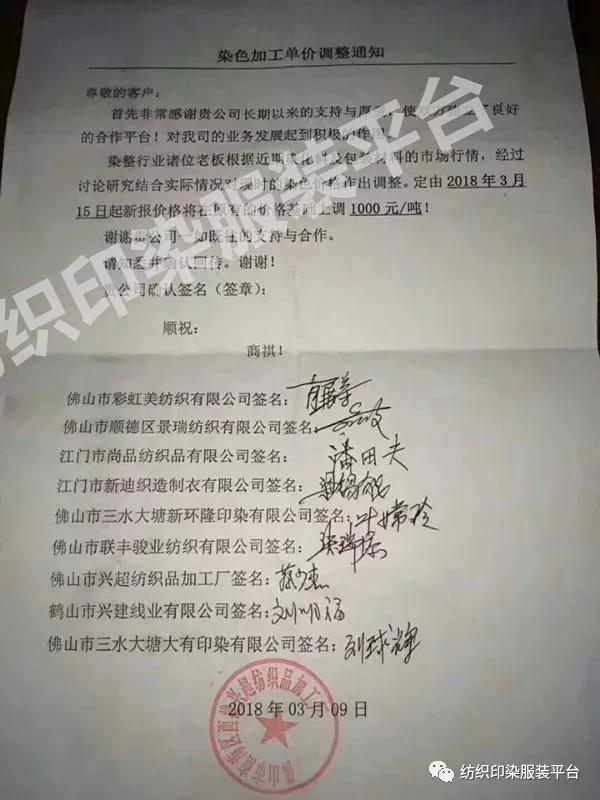 染色加工单价调整通知
尊敬的客户：
首先非常感谢贵公司长期以来的支持与厚 使双方 了良好
的合作平台！对我司的业务发展起到积极的作用。
染整行业诸位老板根据近期染化料及包装材料的市场行情，经过
讨论研究结合实际情况对现时的染色价格作出调整。定由 2018 年 3 月
15 日起新报价格将在原有的价格基础上调 1000 元/吨！
谢谢贵公司一如既往的支持与合作。
请知悉并确认回传。谢谢！
贵公司确认签名（签章）：
顺祝：
商祺！
佛山市彩虹美纺织有限公司签名：
佛山市顺德区景瑞纺织有限公司签名：
江门市尚品纺织品有限公司签名： 潘田夫
江门市新迪织造制衣有限公司签名：
佛山市三水大塘新环隆印染有限公司签名： 叶嫦玲
佛山市联丰骏业纺织有限公司签名：
佛山市兴超纺织品加工厂签名：
鹤山市兴建线业有限公司签名： 刘明福
佛山市三水大塘大有印染有限公司签名： 刘球辉
佛山市南海区西樵兴超纺织品加工厂
2018 年 03 月 09 日
纺织印染服装平台
纺织印染服装平台